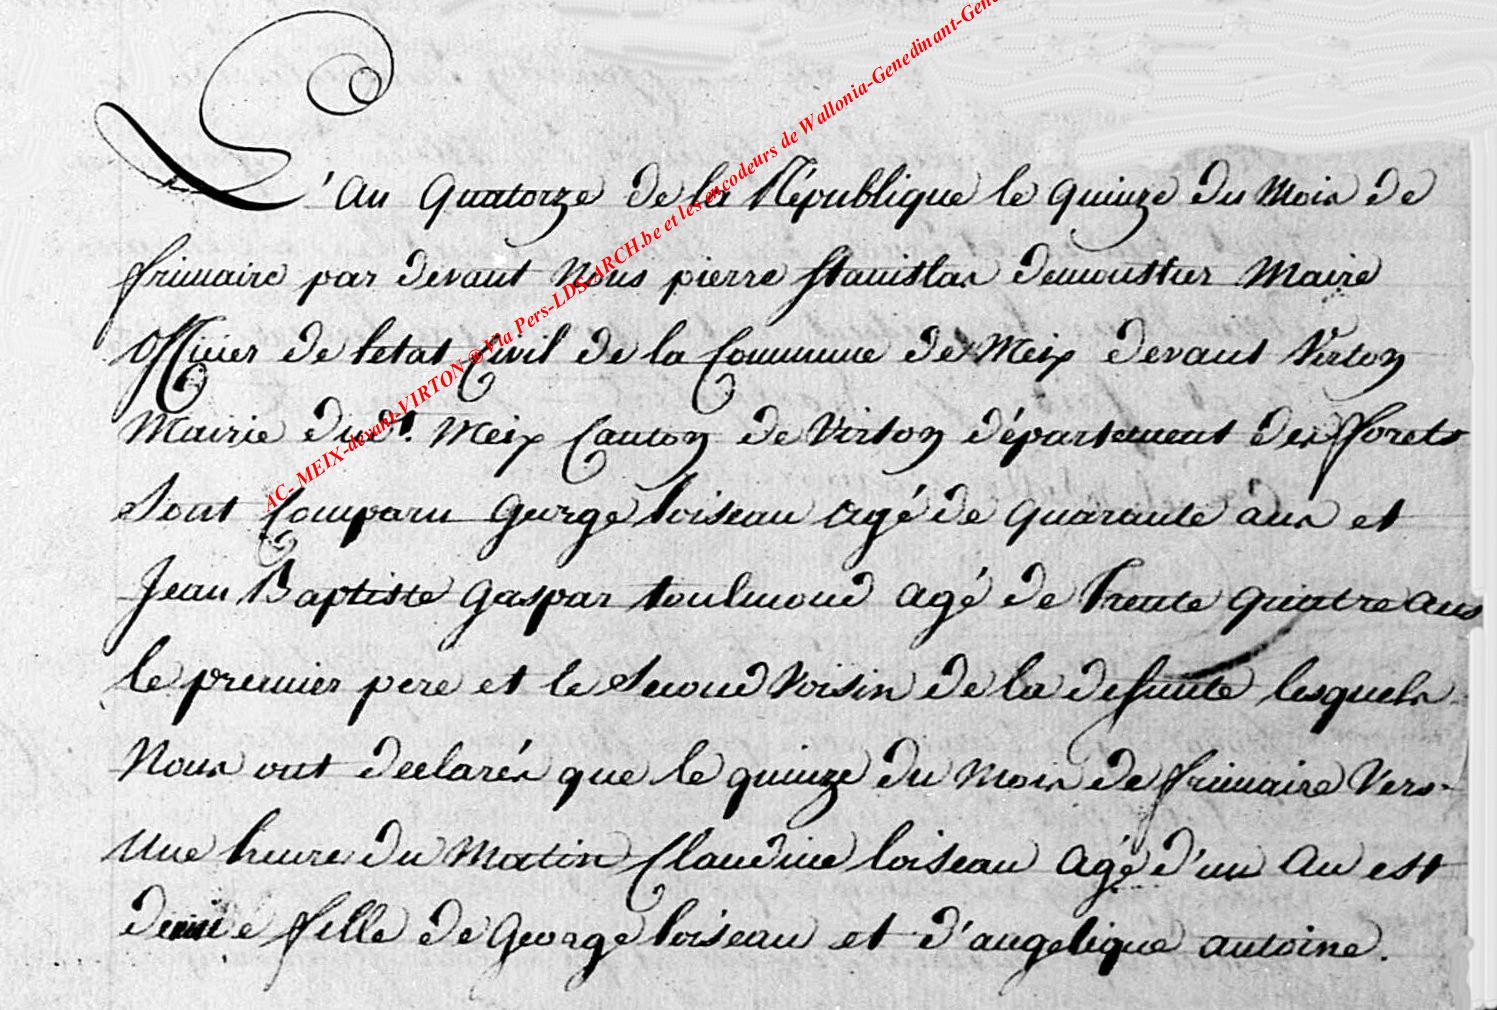 L'an quatorze de la République le quinze du mois de
frimaire par devant nous pierre stanislas demoustier Maire
Officier de letat Civil de la Commune de Meix devant Virton
Mairie dudt. Meix Canton de Virton département des forets
Sont Comparu George loiseau agé de quarante ans et
Jean Baptiste Gaspar toulmond agé de trente quatre ans
le premier pere et le Second Voisin de la defunte lesquels
Nous ont declarés que le quinze du mois de frimaire Vers
Une heure du Matin Claudine loiseau agé d'un an est
fille de George loiseau et d'angelique antoine.
AC- MEIX-devant-VIRTON @ Via Pers-LDS-ARCH.be et les encodeurs de Wallonia-Genedinant-Gen